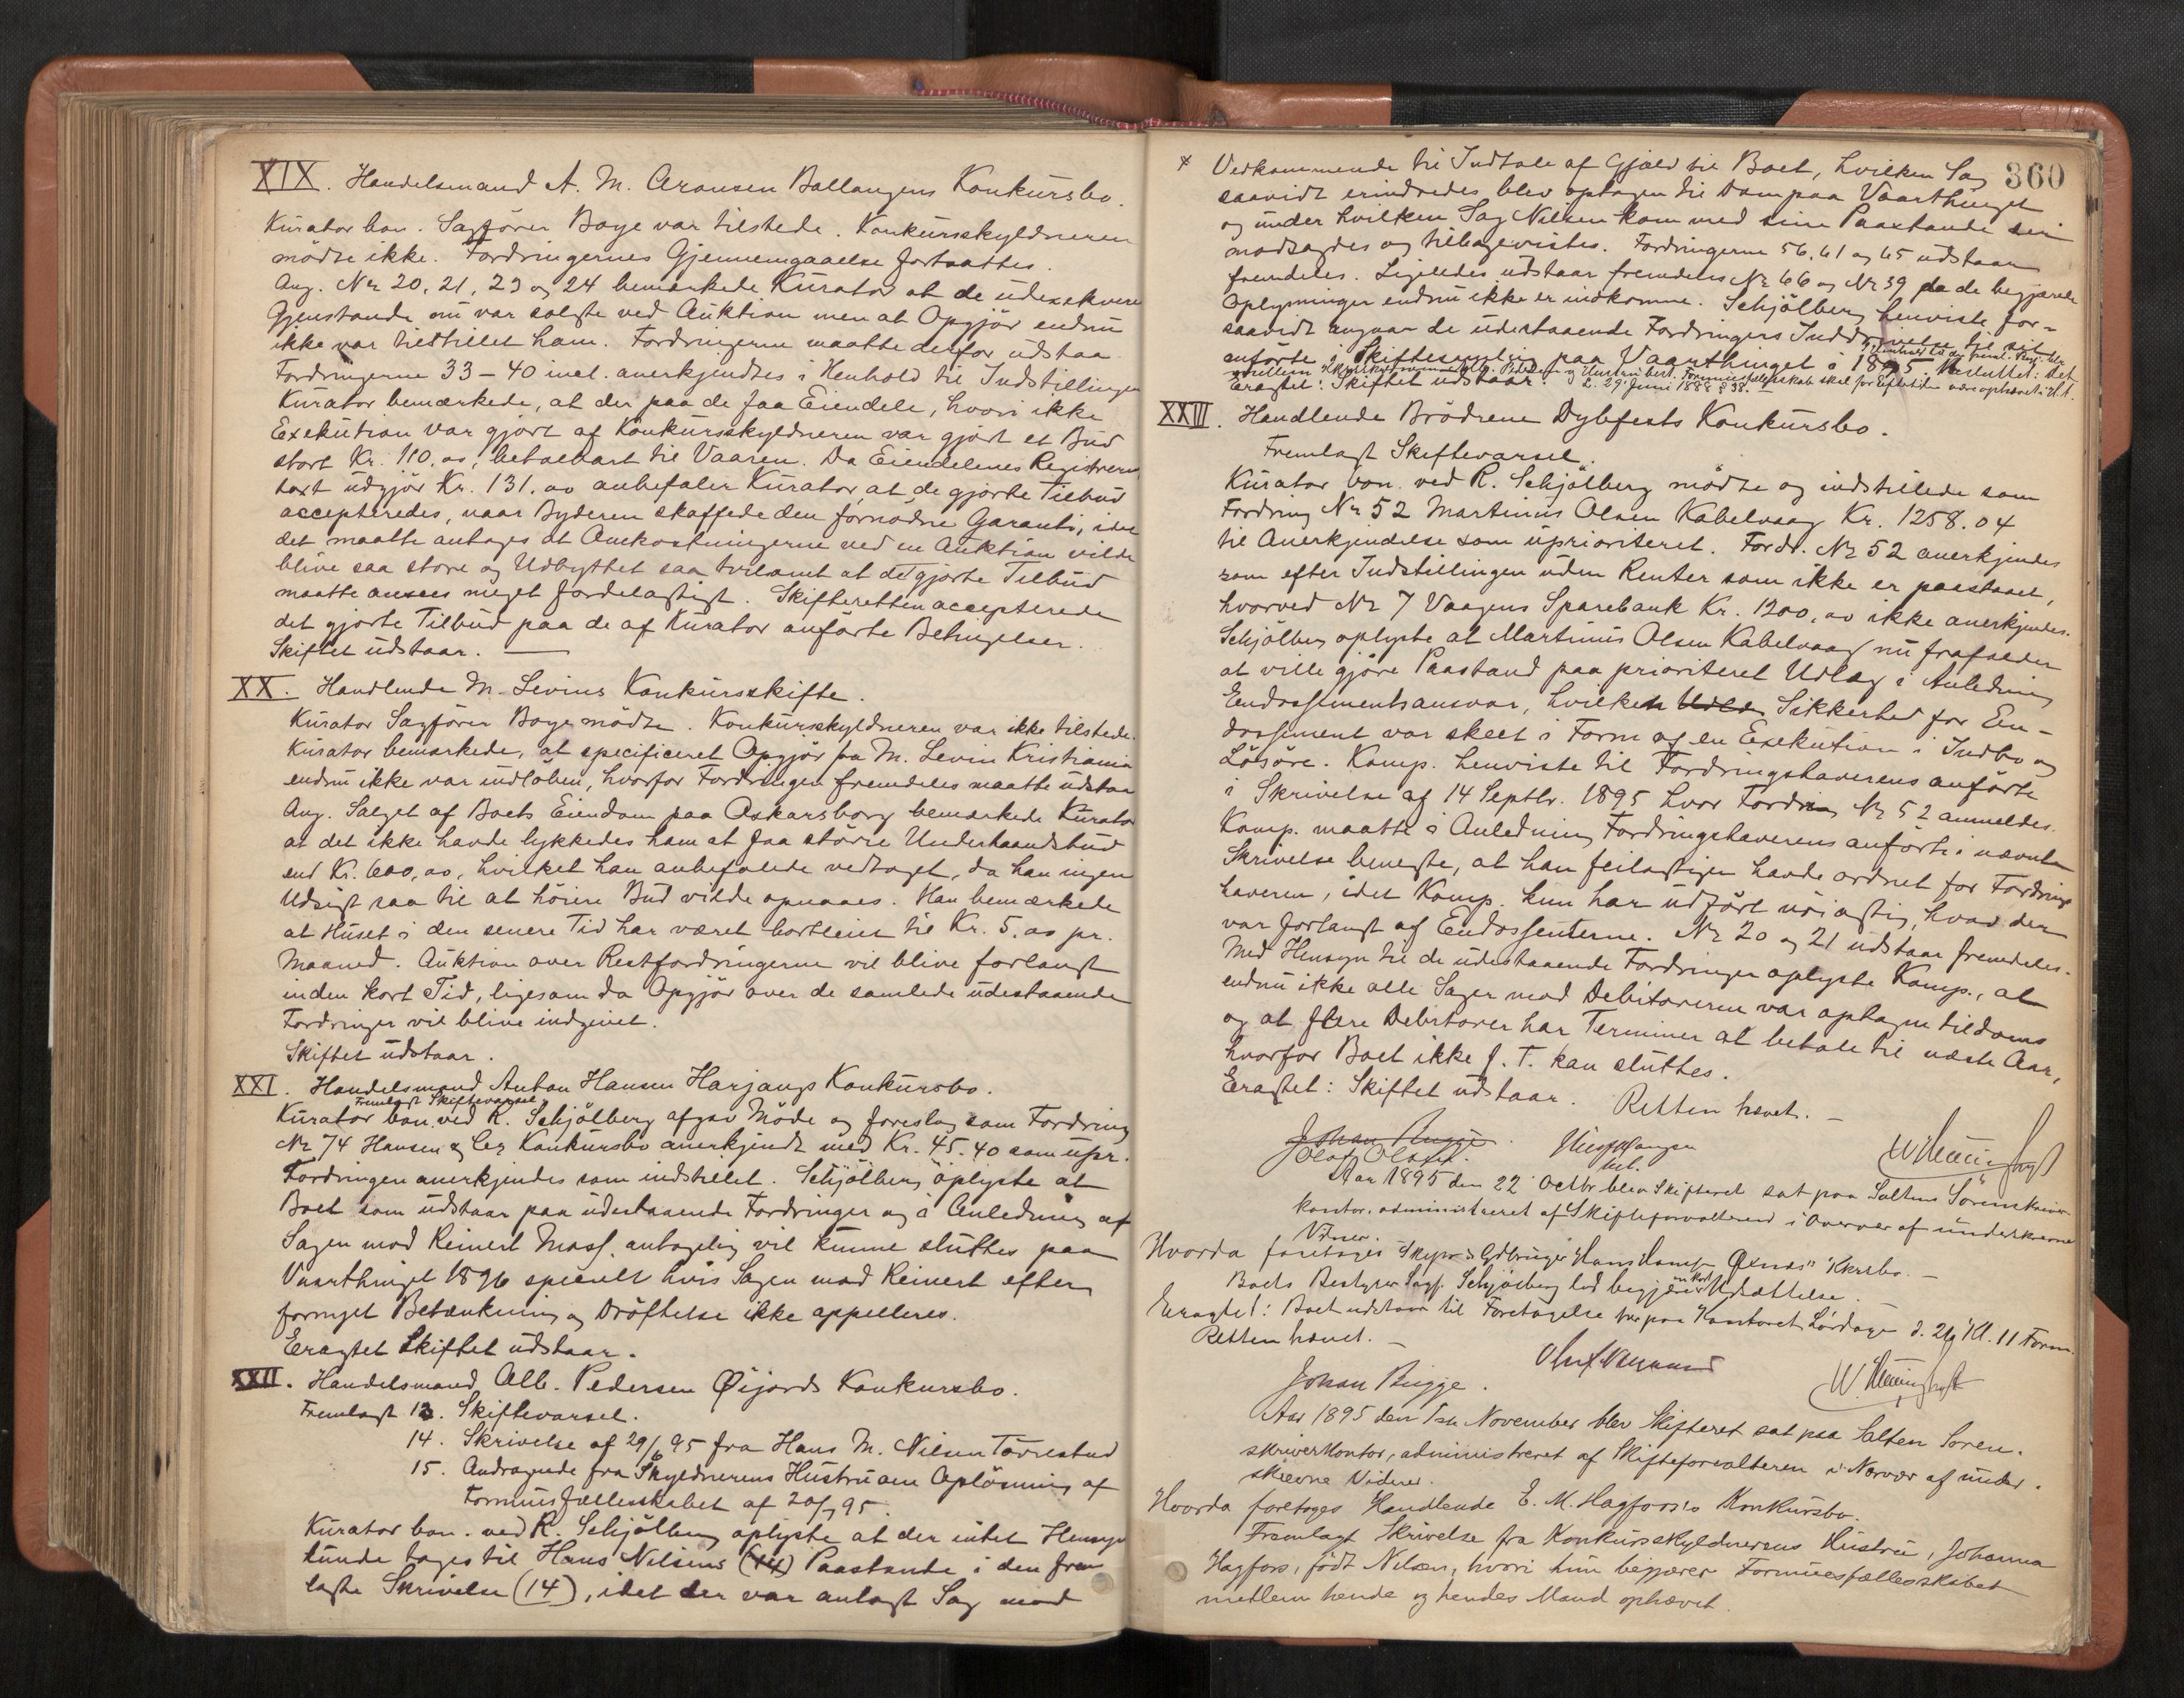 XIX. Handelsmand A. M. Aronsen Ballangens Konkursbo.
Kurator bon. Sagfører Boye var tilstede. Konkursskyldneren
mødte ikke. Fordringernes Gjennemgaaelse fortsattes.
Ang. Nr 20, 21, 23 og 24 bemærkede Kurator at de udexekverede
Gjenstande nu var solgte ved Auktion men at Opgjør endnu
ikke var tilstillet ham. Fordringerne maatte derfor udstaa
Fordringerne 33-40 incl. anerkjendtes i Henhold til Indstillingen
Kurator bemærkede, at der paa de faa Eiendele, hvori ikke
Exekution var gjort af Konkursskyldneren var gjort et Bud
stort Kr. 110,00, betalbart til Vaaren. Da Eiendelenes Registrerings
taxt udgjør Kr. 131.00 anbefaler Kurator at de gjorte Tilbud
accepteredes, naar Byderen skaffede den fornødne Garanti, idet
det maatte antages at Omkostningerne ved en Auktion vilde
blive saa store og Udbyttet saa tvilsomt at det gjorte Tilbud
maatte ansees meget fordelagtigt. Skifteretten accepterede
det gjorte Tilbud paa de af Kurator anførte Betingelser.
Skiftet udstaar.
XX. Handlende M. Levins Konkursskifte.
Kurator Sagfører Boye mødte. Konkursskyldneren var ikke tilstede.
Kurator bemærkede, at specificeret Opgjør fra M. Levin Kristiania
endnu ikke var indløben, hvorfor Fordringen fremdeles maatte udstaa
Ang. Salget af Boets Eiendom paa Oskarsborg bemærkede Kurator
at det ikke havde lykkedes ham at faa større Underhaandsbud
end Kr. 600,00, hvilket han anbefalede vedtaget, da han ingen
Udsigt saa til at høiere Bud vilde opnaaes. Han bemærkede
at Huset i den senere Tid har været bortleiet til Kr. 5.00 pr.
Maaned. Auktion over Restfordringerne vil blive forlangt
inden kort Tid, ligesom da Opgjør over de samlede udestaaende
Fordringer vil blive indgivet.
Skiftet udstaar.
XXI. Handelsmand Anton Hansen Harjangs Konkursbo.
Fremlagt Skiftevarsel.
Kurator bon. ved R. Schjølberg afgav Møde og foreslog som Fordring
Nr 74 Hansen & Co Konkursbo anerkjendt med Kr. 45.40 som upr.
Fordringen anerkjendes som indstillet. Schjølberg oplyste at
Boet som udstaar paa udestaaende Fordringer og i Anledning af
Sagen mod Reinert Moss. antagelig vil kunne sluttes paa
Vaarthinget 1896 specielt hvis Sagen mod Reinert efter
fornyet Betænkning og Drøftelse ikke appelleres.
Eragtet Skiftet udstaar.
XXII. Handelsmand Alb. Pedersen Øijords Konkursbo.
Fremlagt 13. Skiftevarsel.
14. Skrivelse af 29/6 95 fra Hans M. Nilsen Taarestad
15. Andragende fra Skyldnerens Hustru om Opløsning af
Formuesfællesskabet af 20/7 95.
Kurator bon. ved R. Schjølberg oplyste at der intet Hensyn
kunde tages til Hans Nilsens (14) Paastande i den frem
lagte Skrivelse (14), idet der var anlagt Sag mod
360
x Vedkommende til Indtale af Gjæld til Boet, hvilken Sag
saavidt erindredes blev optagen til Dom paa Vaarthinget
og under hvilken Sag Nilsen kom med sine Paastande
modsagdes og tilbagevistes. Fordringerne 56, 61 og 65 udstaar
fremdeles. Ligeledes udstaar fremdeles Nr 66 og Nr 39 da de begjærede
Oplysninger endnu ikke er indkomne. Schjølberg henviste for-
saavidt angaar de udestaaende Fordringers Inddrivelse til sit
anførte i Skiftesamling paa Vaarthinget i 1895. Besluttet: Det
mellem Alb. Pedersen og Hustru best. Formuesfællesskab skal for Eftertiden være ophævet i H. t.
Eragtet: Skiftet udstaar. L. 29 Juni 1888 § 38.
XXIII. Handlende Brødrene Dybfests Konkursbo.
Fremlagt Skiftevarsel.
Kurator bon. ved R. Schjølberg mødte og indstillede som
Fordring Nr 52 Martinus Olsen Kabelvaag Kr. 1258.04
til Anerkjendelse som uprioriteret. Fordr. Nr 52 anerkjendes
som efter Indstillingen uden Renter som ikke er paastaaet,
hvorved Nr 7 Vaagens Sparebank Kr. 1200,00 ikke anerkjendes.
Schjølberg oplyste at Martinus Olsen Kabelvaag nu frafalder
at ville gjøre Paastand paa prioriteret Udlæg i Anledning
Endossementsansvar, hvilken Sikkerhed for En-
dossement var skeet i Form af en Exekution i Indbo og
Løsøre. Komp. henviste til Fordringshaverens anførte
i Skrivelse af 14 Septbr. 1895 hvor Fordring Nr 52 anmeldes.
Komp. maatte i Anledning Fordringshaverens anførte i nævnte
Skrivelse benegte, at han feilagtigen havde ordnet for Fordrings
haveren, idet Komp. kun har udført nøiagtig, hvad der
var forlangt af Endossenterne. Nr 20 og 21 udstaar fremdeles.
Med Hensyn til de udestaaende Fordringer oplyste Komp., at
endnu ikke alle Sager mod Debitorerne var optagne tildoms
og at flere Debitorer har Terminer at betale til næste Aar,
hvorfor Boet ikke f. T. kan sluttes.
Eragtet: Skiftet udstaar. Retten hævet.
Johan Rugge.
Olaf Olsen.
Aar 1895 den 22 Octbr blev Skifteret sat paa Saltens Sorenskriver
kontor, administreret af Skifteforvalteren i Overvær af underskrevne
Vidner.
Hvorda foretoges Skyds & Gdbruger Hans Hansen Øxnæs' Kksbo.
Boets Bestyrer Sagf. Schjølberg lod begjære en kort Udsættelse.
Eragtet: Boet udstaar til Foretagelse her paa Kontoret Lørdage d. 26 Kl. 11 Form.
Retten hævet.
Johan Rugge.
Aar 1895 den 1ste November blev Skifteret sat paa Salten Soren-
skriverkontor, administreret af Skifteforvalteren i Nærvær af under-
skrevne Vidner.
Hvorda foretoges Handlende E. M. Hagfors's Konkursbo.
Fremlagt Skrivelse fra Konkursskyldnerens Hustru, Johanna
Hagfors, født Nilsen, hvori hun begjærer Formuesfællesskabet
mellem hende og hendes Mand ophævet.